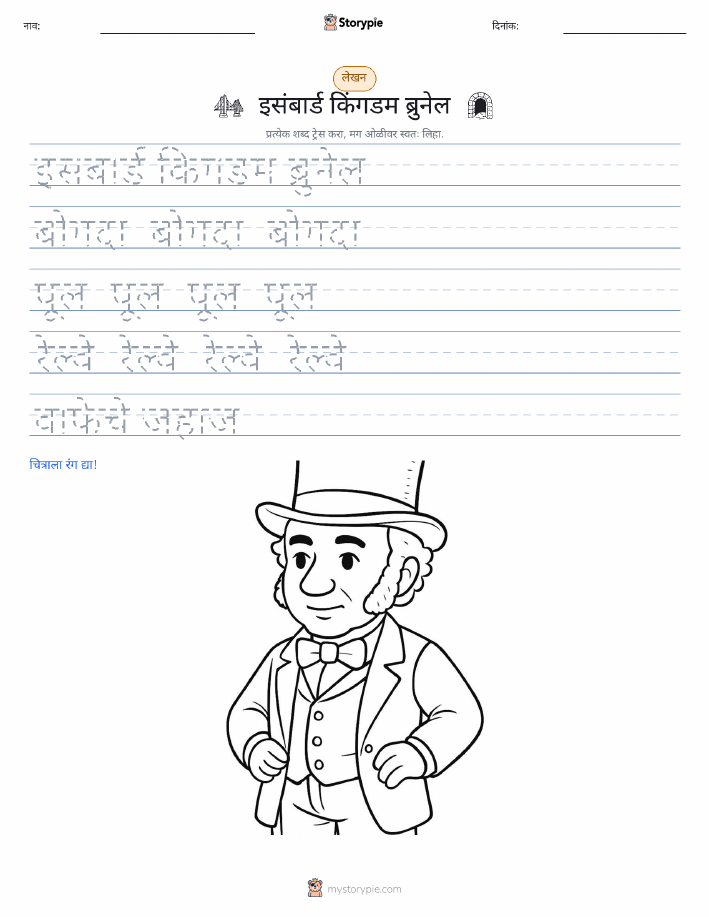 नाव:
Storypie
दिनांक:
लेखन
इसंबार्ड किंगडम ब्रुनेल
प्रत्येक शब्द ट्रेस करा, मग ओळीवर स्वतः लिहा.
इसंबार्ड किंगडम ब्रुनेल
बोगदा बोगदा बोगदा
पूल पूल पूल पूल
रेल्वे रेल्वे रेल्वे रेल्वे
वाफेचे जहाज
चित्राला रंग द्या!
mystorypie.com